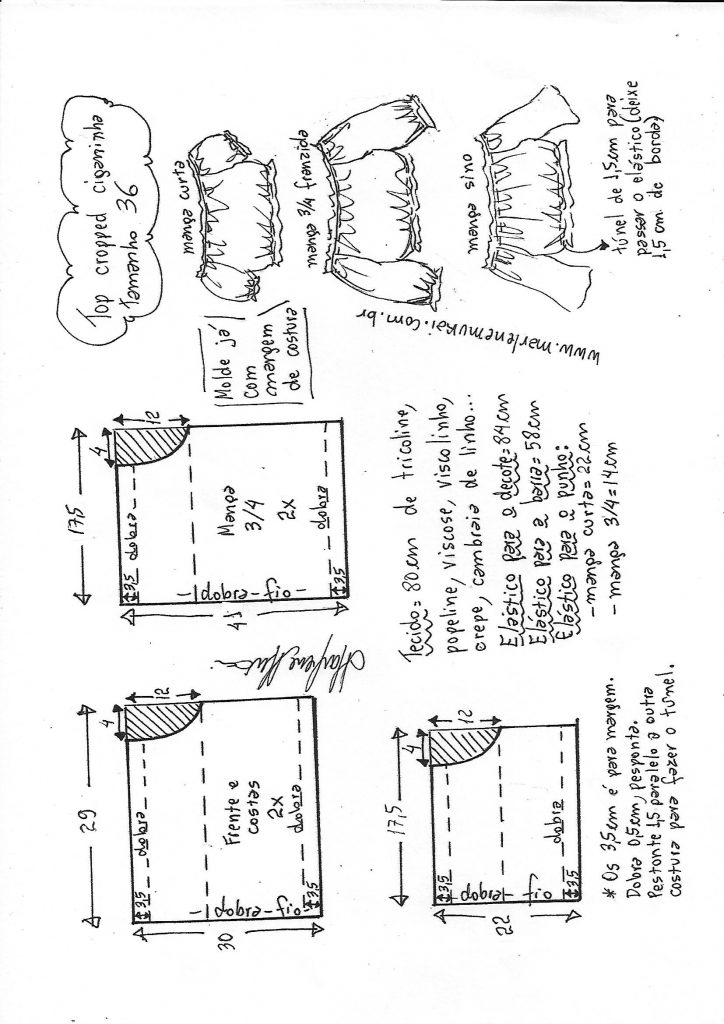 Top cropped ciganinha
tamanho 36
manga curta
manga 3/4 franzida
manga sino
túnel de 1,5cm para
passar o elástico (deixe
1,5 cm de borda)
Molde já
com
margem
de costura
www.marlenemukai.com.br
17,5
4
12
3,5
dobra
Manga
3/4
2x
dobra
-fio- dobra-
3,5
41
Tecido= 80cm de tricoline,
popeline, viscose, visco linho,
crepe, cambraia de linho...
Elástico para o decote= 84cm
Elástico para a barra= 58cm
Elástico para o punho:
- manga curta= 22cm
- manga 3/4= 14cm
29
4
12
3,5
dobra
Frente e
costas
2x
dobra
-fio- dobra-
3,5
30
17,5
4
12
3,5
dobra
-fio- dobra-
3,5
22
* Os 3,5cm é para margem.
Dobra 0,5cm, pesponta.
Pestonte 1,5 paralelo a outra
costura para fazer o túnel.